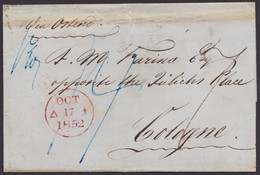 via Ostend
A. M. Farina Esq
opposite the Jülichs Place
Cologne.
OCT
17
1852